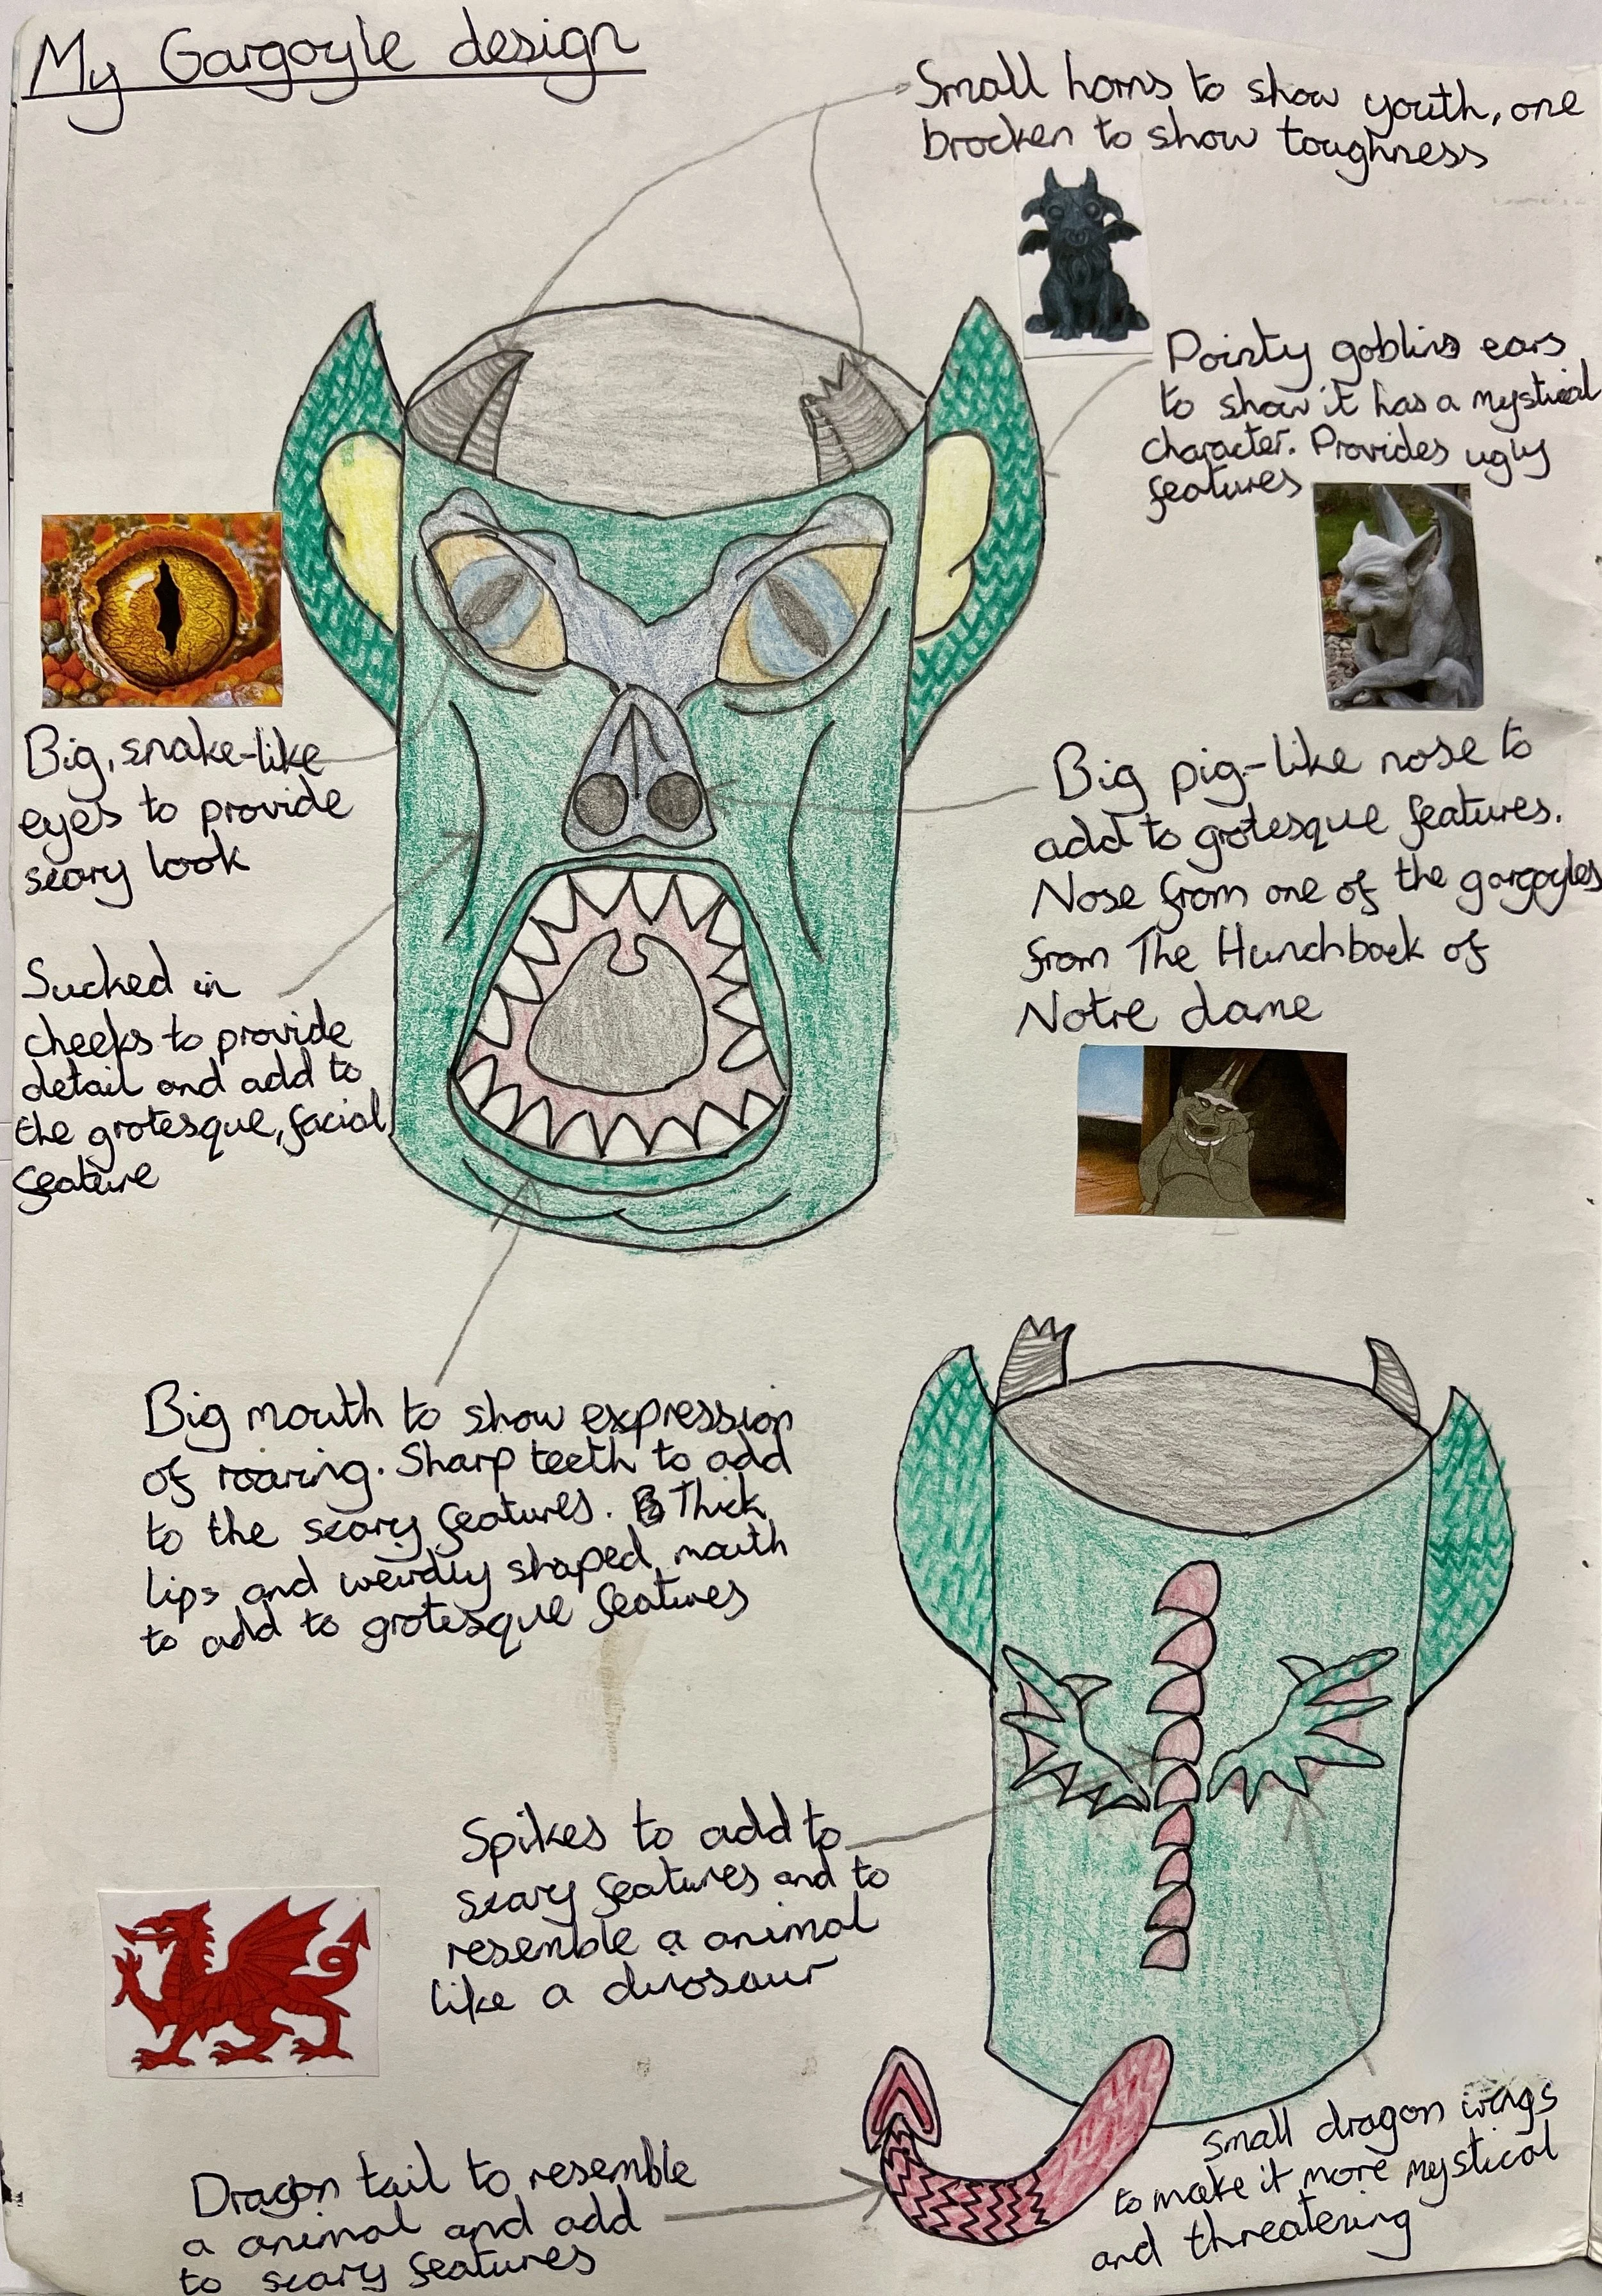 My Gargoyle design
Small horns to show youth, one
brocken to show toughness
Pointy goblins ears
to show it has a mystical
character. Provides ugly
features
Big, snake-like
eyes to provide
scary look
Big pig-like nose to
add to grotesque features.
Nose from one of the gargoyles
from The Hunchback of
Notre dame
Sucked in
cheeks to provide
detail and add to
the grotesque, facial
feature
Big mouth to show expression
of roaring. Sharp teeth to add
to the scary features. Thick
lips and weirdly shaped mouth
to add to grotesque features
Spikes to add to
scary features and to
resemble a animal
like a dinosaur
Small dragon wings
to make it more mystical
and threatening
Dragon tail to resemble
a animal and add
to scary features